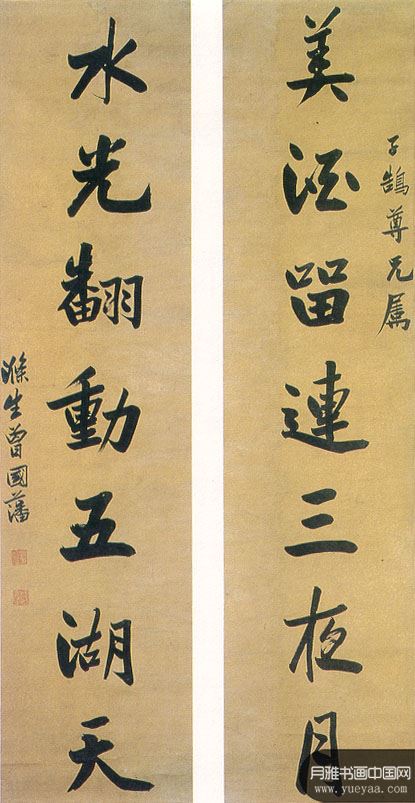 子鵠尊兄属
美酒留連三夜月
水光翻動五湖天
滌生曾國藩
月雅书画中国网
www.yueyaa.com